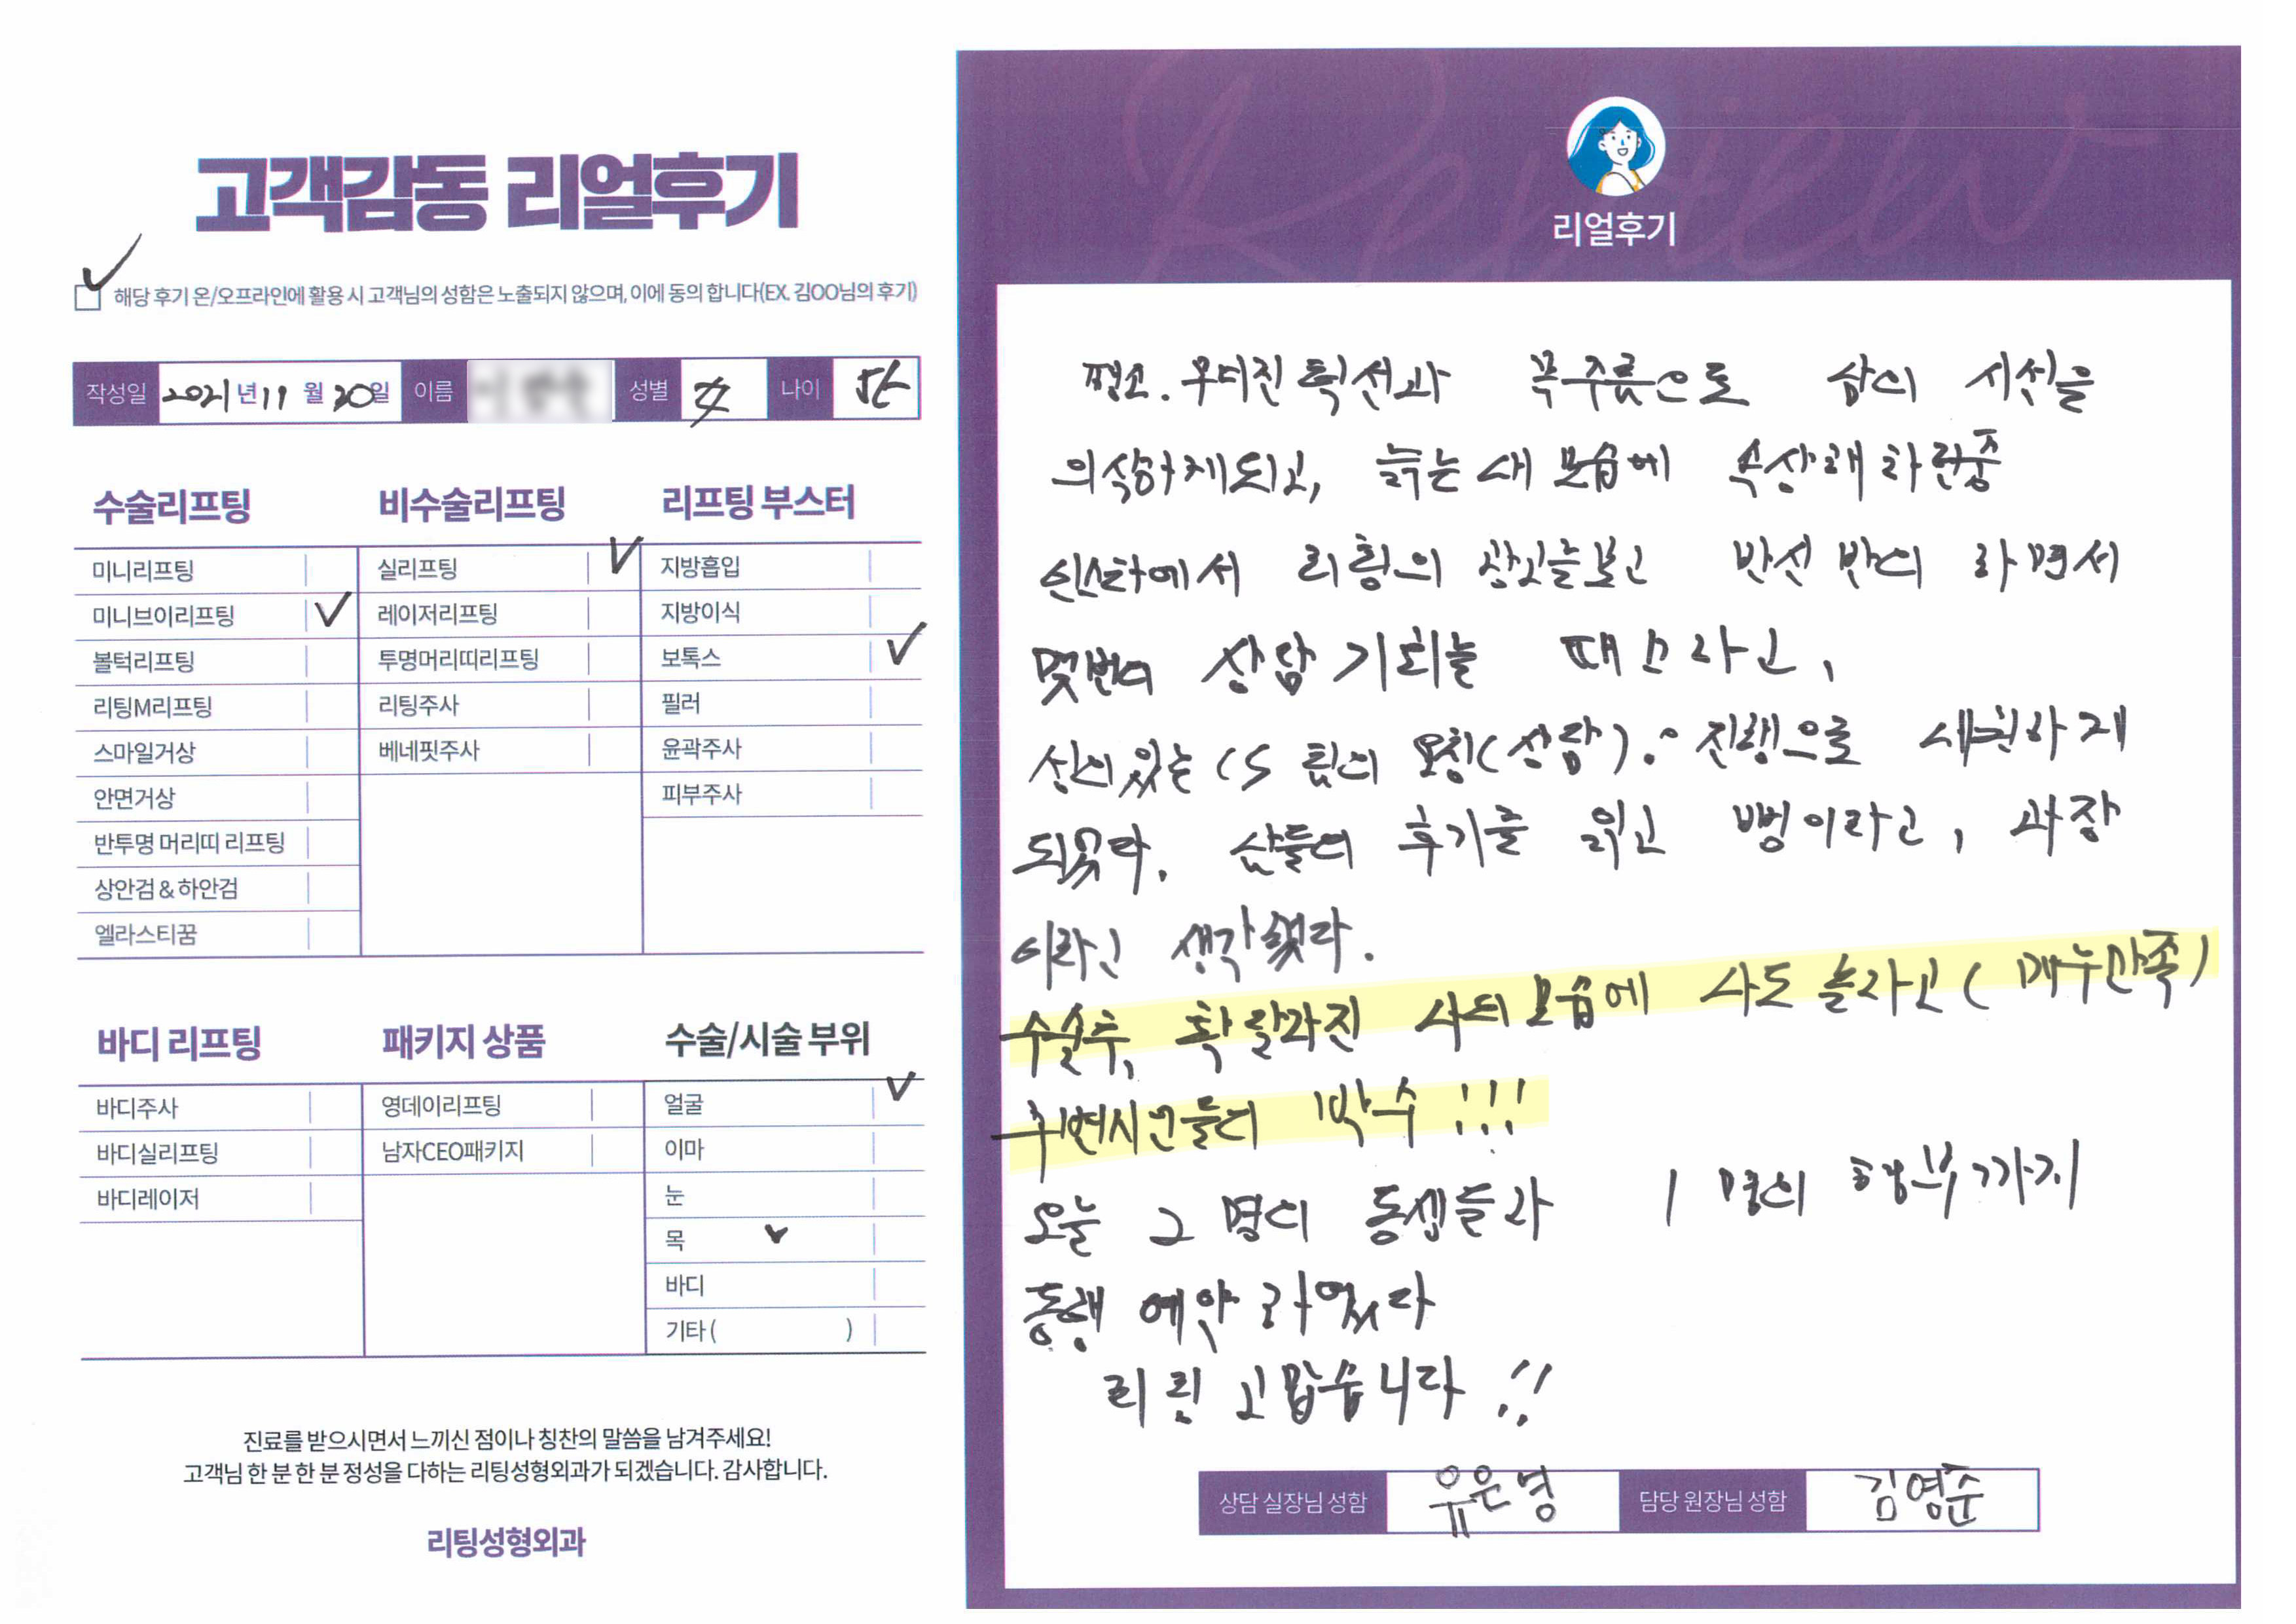 고객감동 리얼후기
해당 후기 온/오프라인에 활용 시 고객님의 성함은 노출되지 않으며, 이에 동의 합니다(EX. 김OO님의 후기)
작성일 2021년 11월 20일 이름 성별 女 나이
수술리프팅
미니리프팅
미니브이리프팅
볼턱리프팅
리팅M리프팅
스마일거상
안면거상
반투명 머리띠 리프팅
상안검 & 하안검
엘라스티꿈
비수술리프팅
실리프팅
레이저리프팅
투명머리띠리프팅
리팅주사
베네핏주사
리프팅 부스터
지방흡입
지방이식
보톡스
필러
윤곽주사
피부주사
바디 리프팅
바디주사
바디실리프팅
바디레이저
패키지 상품
영데이리프팅
남자CEO패키지
수술/시술 부위
얼굴
이마
눈
목
바디
기타 ( )
진료를 받으시면서 느끼신 점이나 칭찬의 말씀을 남겨주세요!
고객님 한 분 한 분 정성을 다하는 리팅성형외과가 되겠습니다. 감사합니다.
리팅성형외과
Review
리얼후기
평소. 무더진 턱선과 목주름으로 시선을
의식하게되고, 늙는 내 모습에 속상해 하던중
에서 리팅의 광고를보고 반신 반의 하면서
몇번의 상담 기회를
있는 CS 팀의 (상담). 진행으로
되었다. 후기를 읽고 뻥이라고, 과장
이라고 생각했다.
수술후, 확 달라진 모습에 나도 놀라고 ( 매우만족)
박수 !!!
오늘 2 명의 동생들과 1 명의 형부까지
동행 예약 하였다
리팅 고맙습니다 !!
상담 실장님 성함 유은영 담당 원장님 성함 김영준